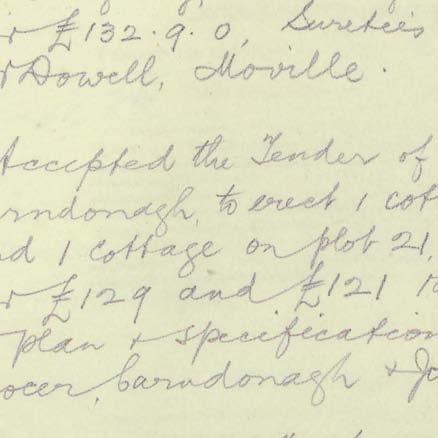 r £132.9.0, Sureties
Dowell, Moville.
Accepted the Tender of
arndonagh, to erect 1 cot
nd 1 cottage on plot 21,
r £129 and £121 
plan + specification
ocer, Carndonagh + Jo